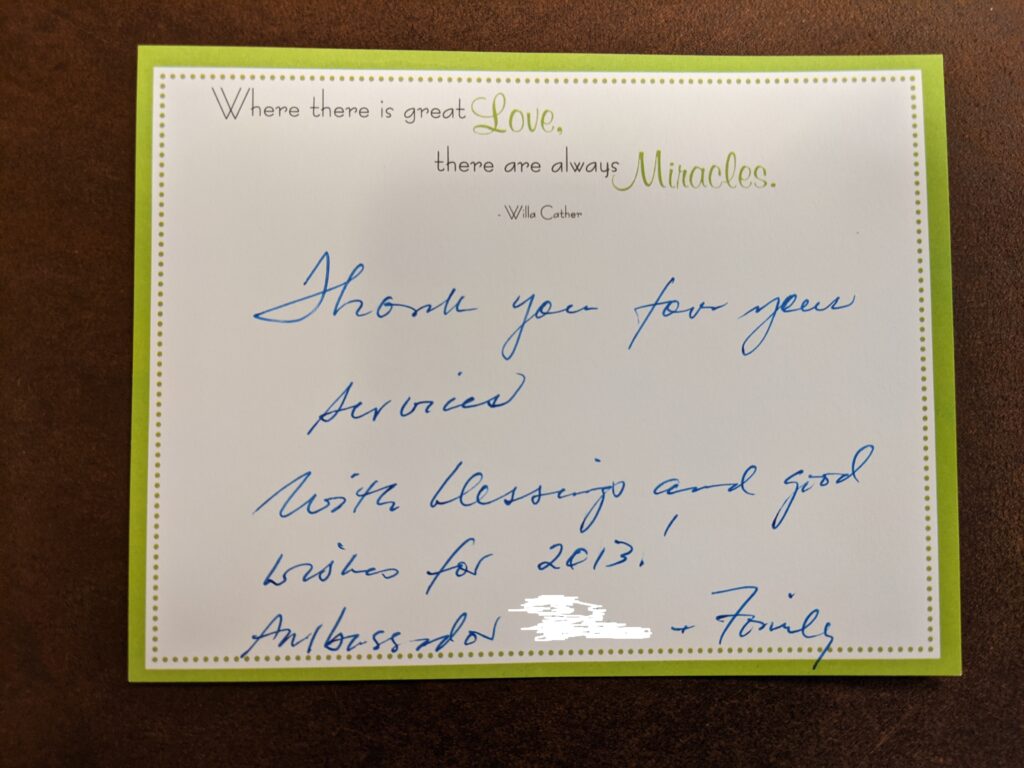 Where there is great Love,
there are always Miracles.
- Willa Cather
Thank you for your
services
With blessings and good
wishes for 2013!
Ambassador + Family